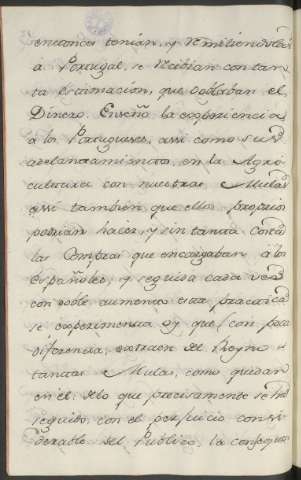 entonces tenian, y remitiendolas
à Portugal, se recibian con tan-
ta estimacion, que doblaban el
Dinero. Enseñò la experiencia
a los Portugueses, assi como sus
adelantamientos, en la Agri-
cultura con nuestras Mulas
assi tambien, que ellos proprios
podian hacer, y sin tanta
las Compras que encargaban à los
Españoles, y seguida cada vez
con doble aumento esta practica
se experimenta oy que (con poca
diferencia, extraen del Reyno
tantas Mulas, como quedan
en el; de lo que precisamente se ha
seguido, con el perjuicio consi-
derable del Publico, la consequen